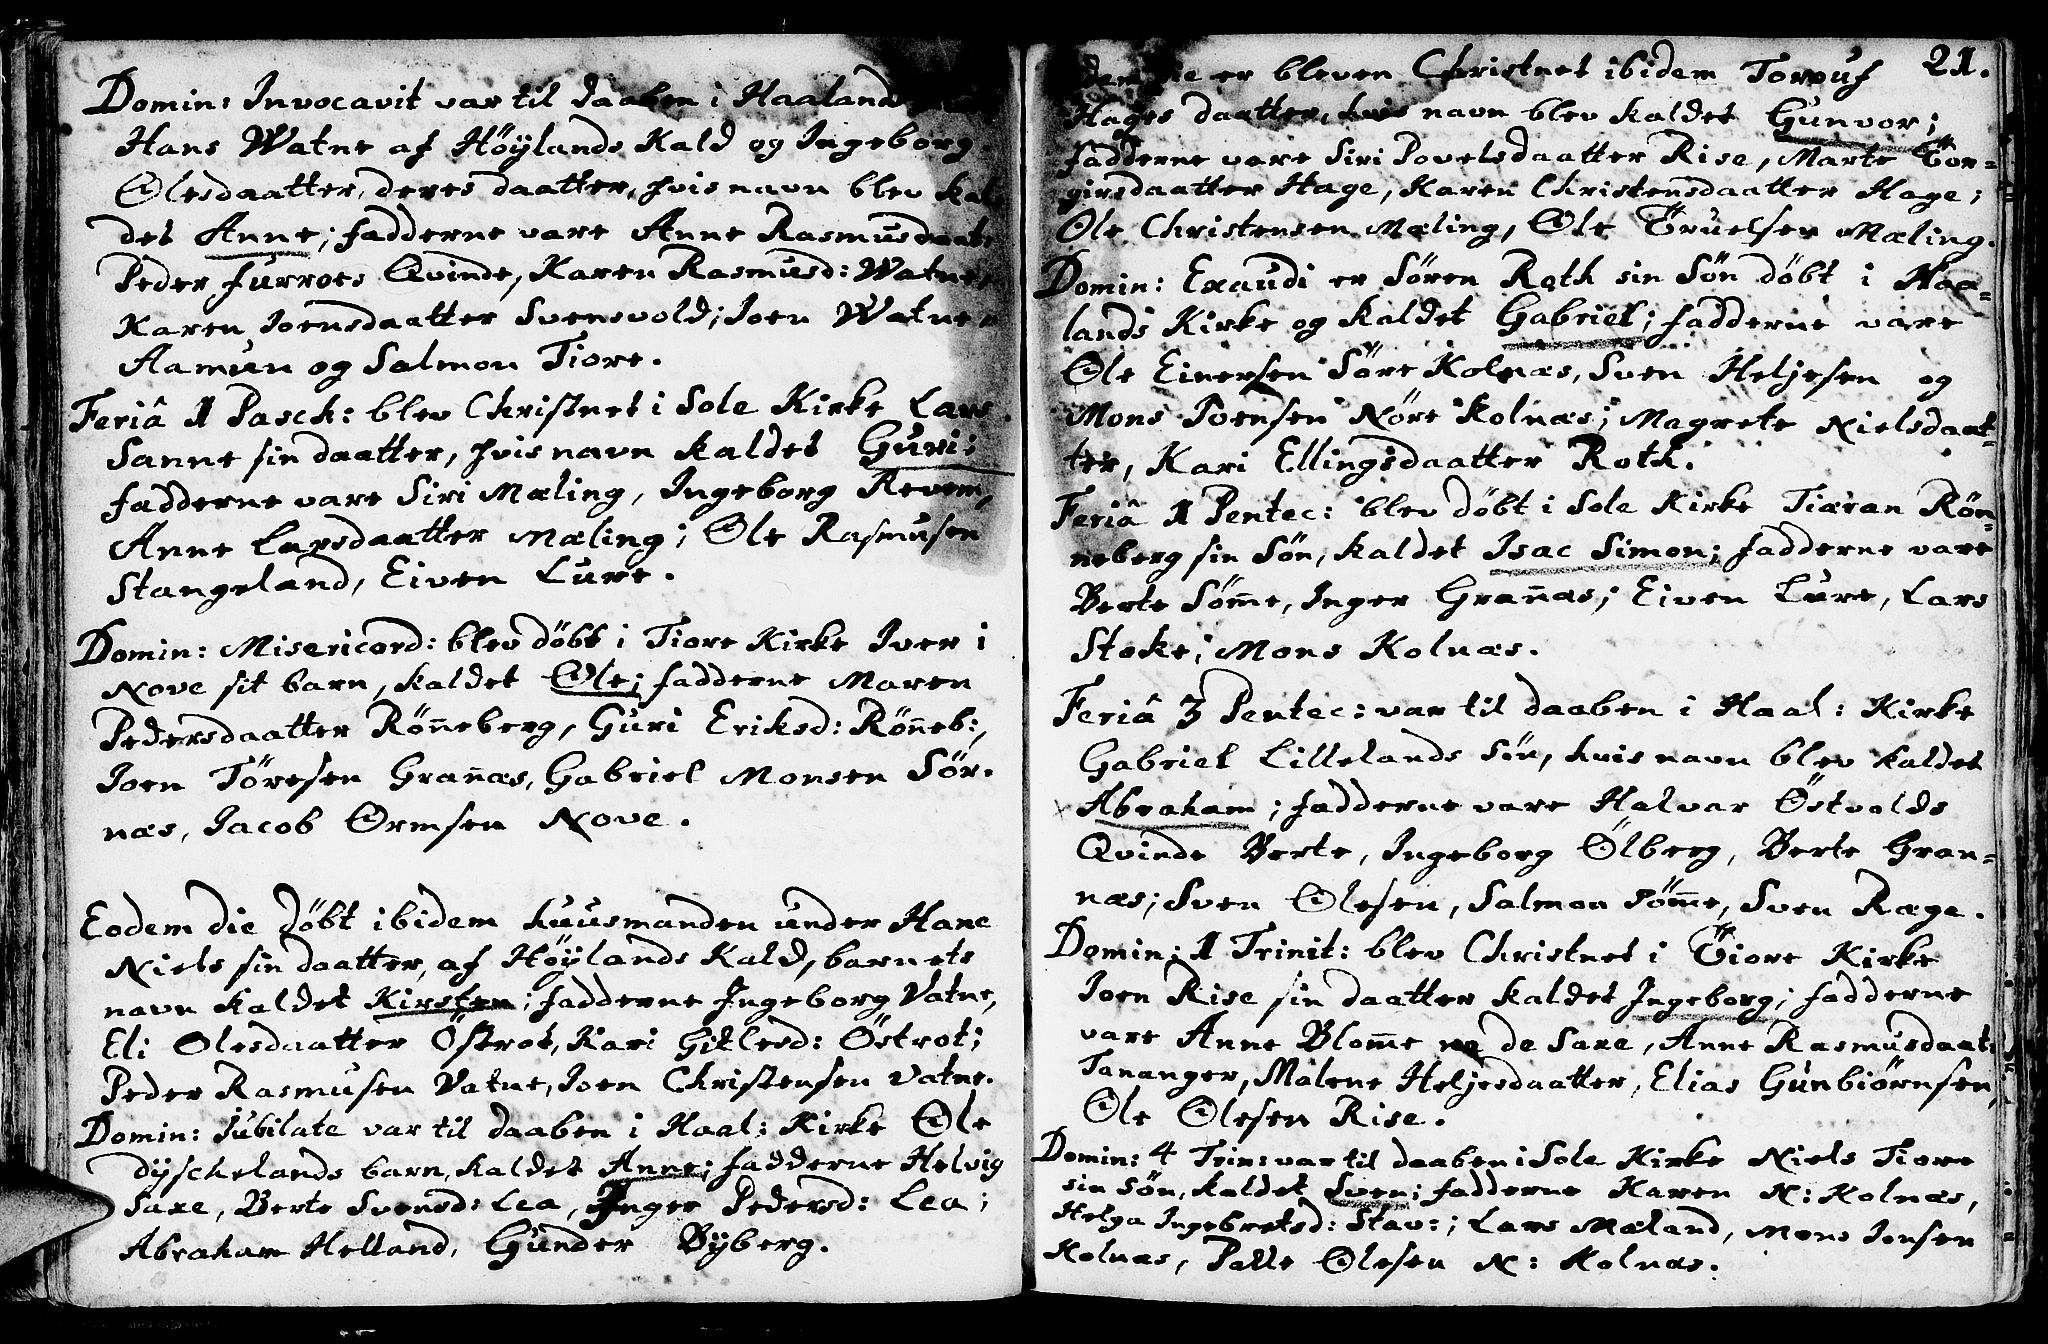 Domin: Invocavit var til daaben i Haaland
Hans Watne af Höÿlands Kald og Ingeborg
Olesdaatter, deres daatter, hvis navn blev kal
det Anne; fadderne vare Anne Rasmusdaat
Peder furroes Qvinde, Karen Rasmusd: Watne
Karen Joensdaatter Svensvold; Joen Watne
Aamun og Salmon Tiore.
Feriâ 1 Pasch: blev Christnet i Sole Kirke Lars
Sanne sin daatter, hvis navn kaldet Guri;
fadderne vare Siri Mæling, Ingeborg Revem,
Anne Larsdaatter Mæling; Ole Rasmusen
Stangeland, Eiven Lure.
Domin: Misericord: blev döbt i Tiore Kirke Iver i
Nove sit barn, kaldet Ole; fadderne Maren
Pedersdaatter Röñeberg, Guri Eriksd: Röñeb:,
Joen Töresen Grañæs, Gabriel Monsen Sör-
næs, Jacob Ormsen Nove.
Eodem die döbt ibidem huusmanden under Hane
Niels sin daatter, af Höÿlands Kald, barnets
navn kaldet Kirsten; fadderne Ingeborg Vatne,
Eli Olesdaatter Östrot, Kari Gitlesd: Östrot;
Peder Rasmusen Vatne, Joen Christensen Vatne.
Domin: jubilate var til daaben i Haal: Kirke Ole
Dÿschelands barn, kaldet Anne; fadderne Helvig
Saxe, Berte Svensd: Lea, Inger Pedersd: Lea;
Abraham Helland, Gunder Bÿberg.
21.
die er bleven Christnet ibidem Toreuf
Hages daatter, hvis navn blev kaldet Gunvor;
fadderne vare Siri Povelsdaatter Rise, Marte Tor=
girsdaatter Hage, Karen Christensdaatter Hage;
Ole Christensen Mæling, Ole Truelsen Mæling.
Domin: Exaudi er Sören Roth sin Sön döbt i Haa=
lands Kirke og kaldet Gabriel; fadderne vare
Ole Einersen Söre Kolnæs, Sven Heljesen og
Mons Joensen Nöre Kolnæs; Magrete Nielsdaat=
ter, Kari Ellingsdaatter Roth.
Feriâ 1 Pentec: blev döbt i Sole Kirke Tiæran Rön=
neberg sin Sön, kaldet Isac Simon; fadderne vare
Berte Söm̃e, Inger Grañæs; Eiven Lure, Lars
Stoke; Mons Kolnæs.
Feriâ 3 Pentec: var til daaben i Haal: Kirke
Gabriel Lillelands Sön, hvis navn blev kaldet
Abraham; fadderne vare Halvar Östvolds
Qvinde Berte, Ingeborg Ölberg, Berte Gran=
næs; Sven Olesen, Salmon Söm̃e, Sven Ræge.
Domin: 1 Trinit: blev Christnet i Tiore Kirke
Joen Rise sin daatter kaldet Ingeborg; fadderne
vare Anne Blom̃e de Saxe, Anne Rasmusdaat:
Tananger, Malene Heljesdaatter, Elias Gunbiörnsen,
Ole Olesen Rise.
Domin: 4 Trin: var til daaben i Sole Kirke Niels Tiore
sin Sön, kaldet Sven; fadderne Karen N: Kolnæs,
Helga Ingebretsd: Stav:; Lars Mæland, Mons Jonsen
Kolnæs, Palle Olesen N: Kolnæs.